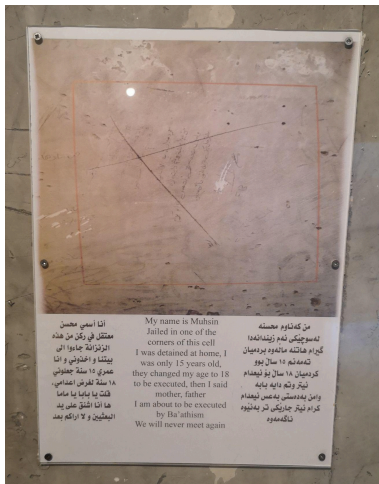 أنا أسمي محسن
معتقل في ركن من هذه
الزنزانة جاءوا الى
بيتنا و اخذوني و انا
عمري ١٥ سنة جعلوني
١٨ سنة لغرض اعدامي،
قلت يا بابا يا ماما
ها أنا اشنق على يد
البعثيين و لا اراكم بعد
My name is Muhsin
Jailed in one of the
corners of this cell
I was detained at home, I
was only 15 years old,
they changed my age to 18
to be executed, then I said
mother, father
I am about to be executed
by Ba'athism
We will never meet again
من گەناوم محسنە
لەسوچێکی ئەم زیندانەدا
گیرام هاتنە ماڵەوە بردمیان
تەمەنم ١٥ ساڵ بوو
کردمیان ١٨ ساڵ بۆ ئیعدام
ئیتر وتم دایە بابە
وامن بەدەستی بەعس ئیعدام
کرام ئیتر جارێکی تر بەئێوە
ناگەمەوە